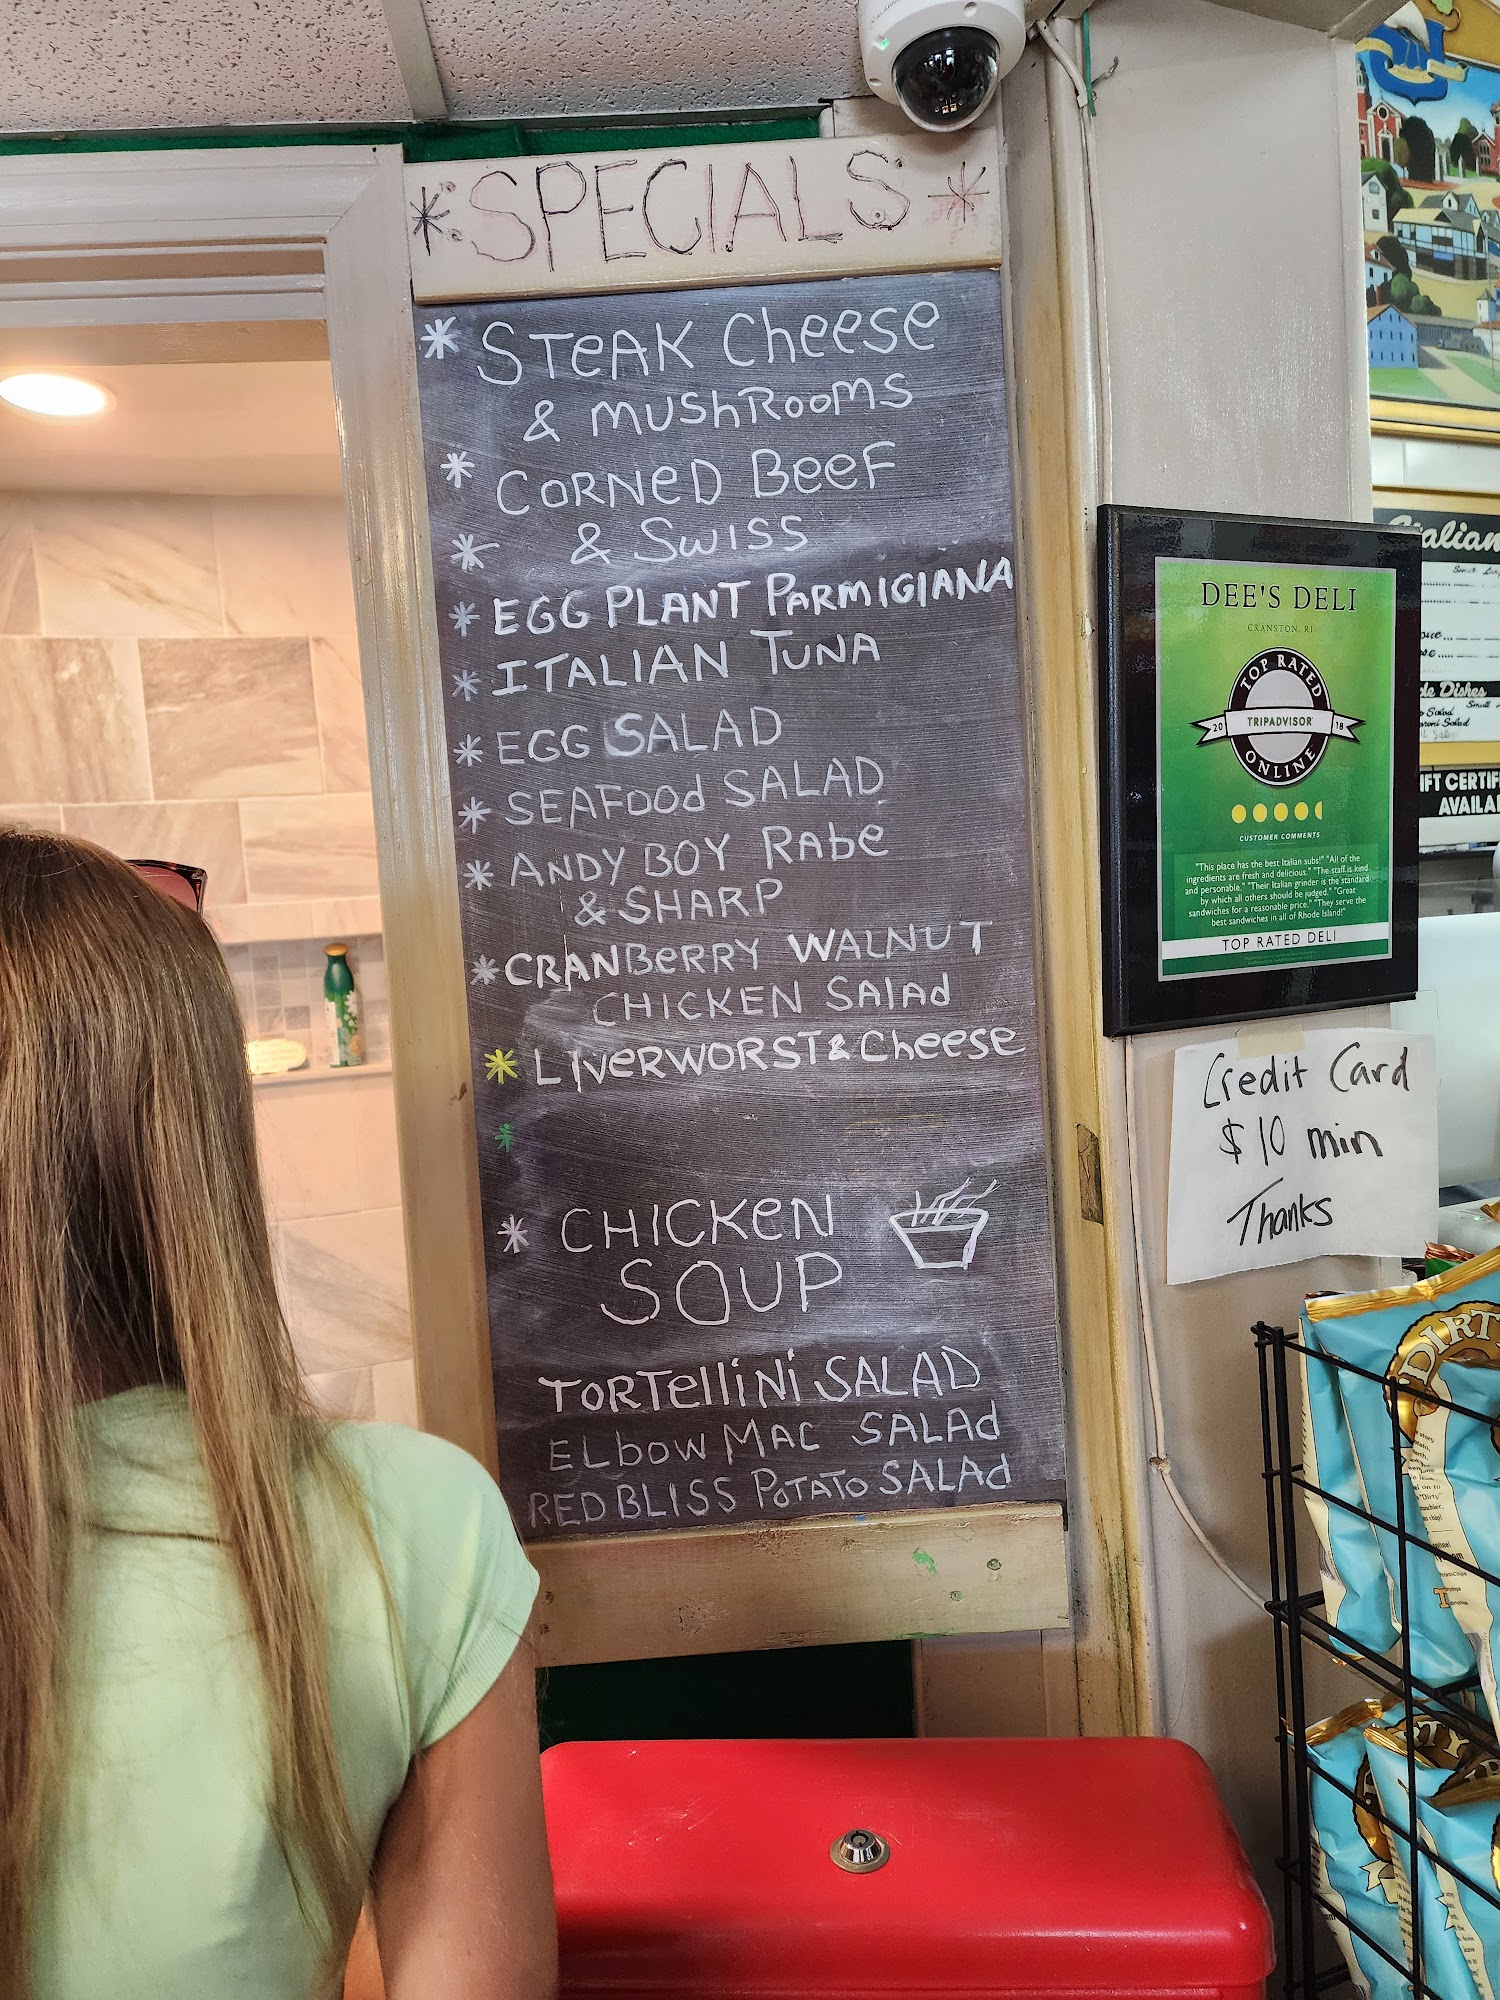 * SPECIALS *
* STEAK CHEESE
& MUSHROOMS
* CORNED BEEF
* & SWISS
* EGG PLANT PARMIGIANA
* ITALIAN TUNA
* EGG SALAD
* SEAFOOD SALAD
* ANDY BOY RABE
& SHARP
* CRANBERRY WALNUT
CHICKEN SALAD
* LIVERWORST & CHEESE
*
* CHICKEN
SOUP
TORTELLINI SALAD
ELBOW MAC SALAD
RED BLISS POTATO SALAD
DEE'S DELI
CRANSTON, RI
TOP RATED
20 TRIPADVISOR 18
ONLINE
CUSTOMER COMMENTS
"This place has the best Italian subs!" "All of the
ingredients are fresh and delicious." "The staff is kind
and personable." "Their Italian grinder is the standard
by which all others should be judged." "Great
sandwiches for a reasonable price." "They serve the
best sandwiches in all of Rhode Island!"
TOP RATED DELI
Credit Card
$10 min
Thanks
Italian
Dishes
Small
Salad
Salad
IFT CERTIF
AVAILA
DIRTY